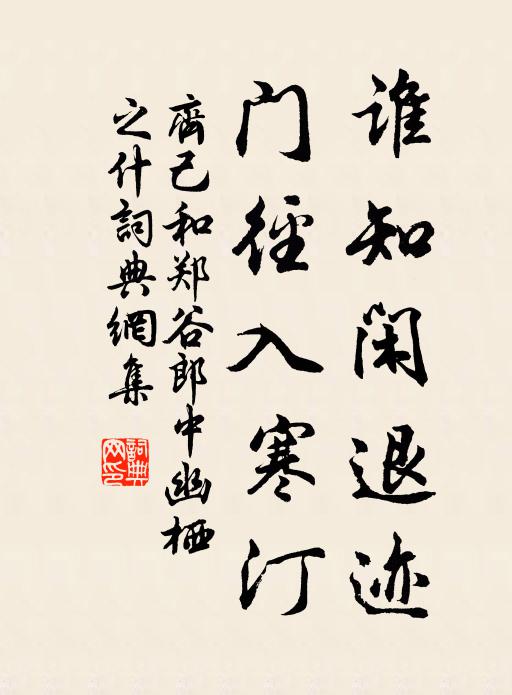 谁知闲退迹
门径入寒汀
齊己和郑谷郎中幽栖
之什詞典網集
詞典网印